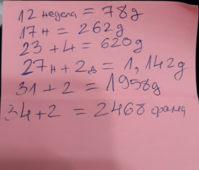 12 недела = 78g
17н = 262g
23 + 4 = 620g
27н + 2д = 1,142g
31 + 2 = 1958g
34 + 2 = 2468 грама